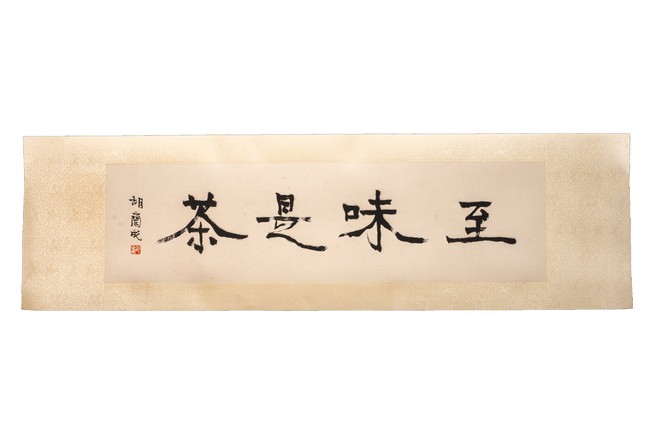 至味是茶
胡蘭成